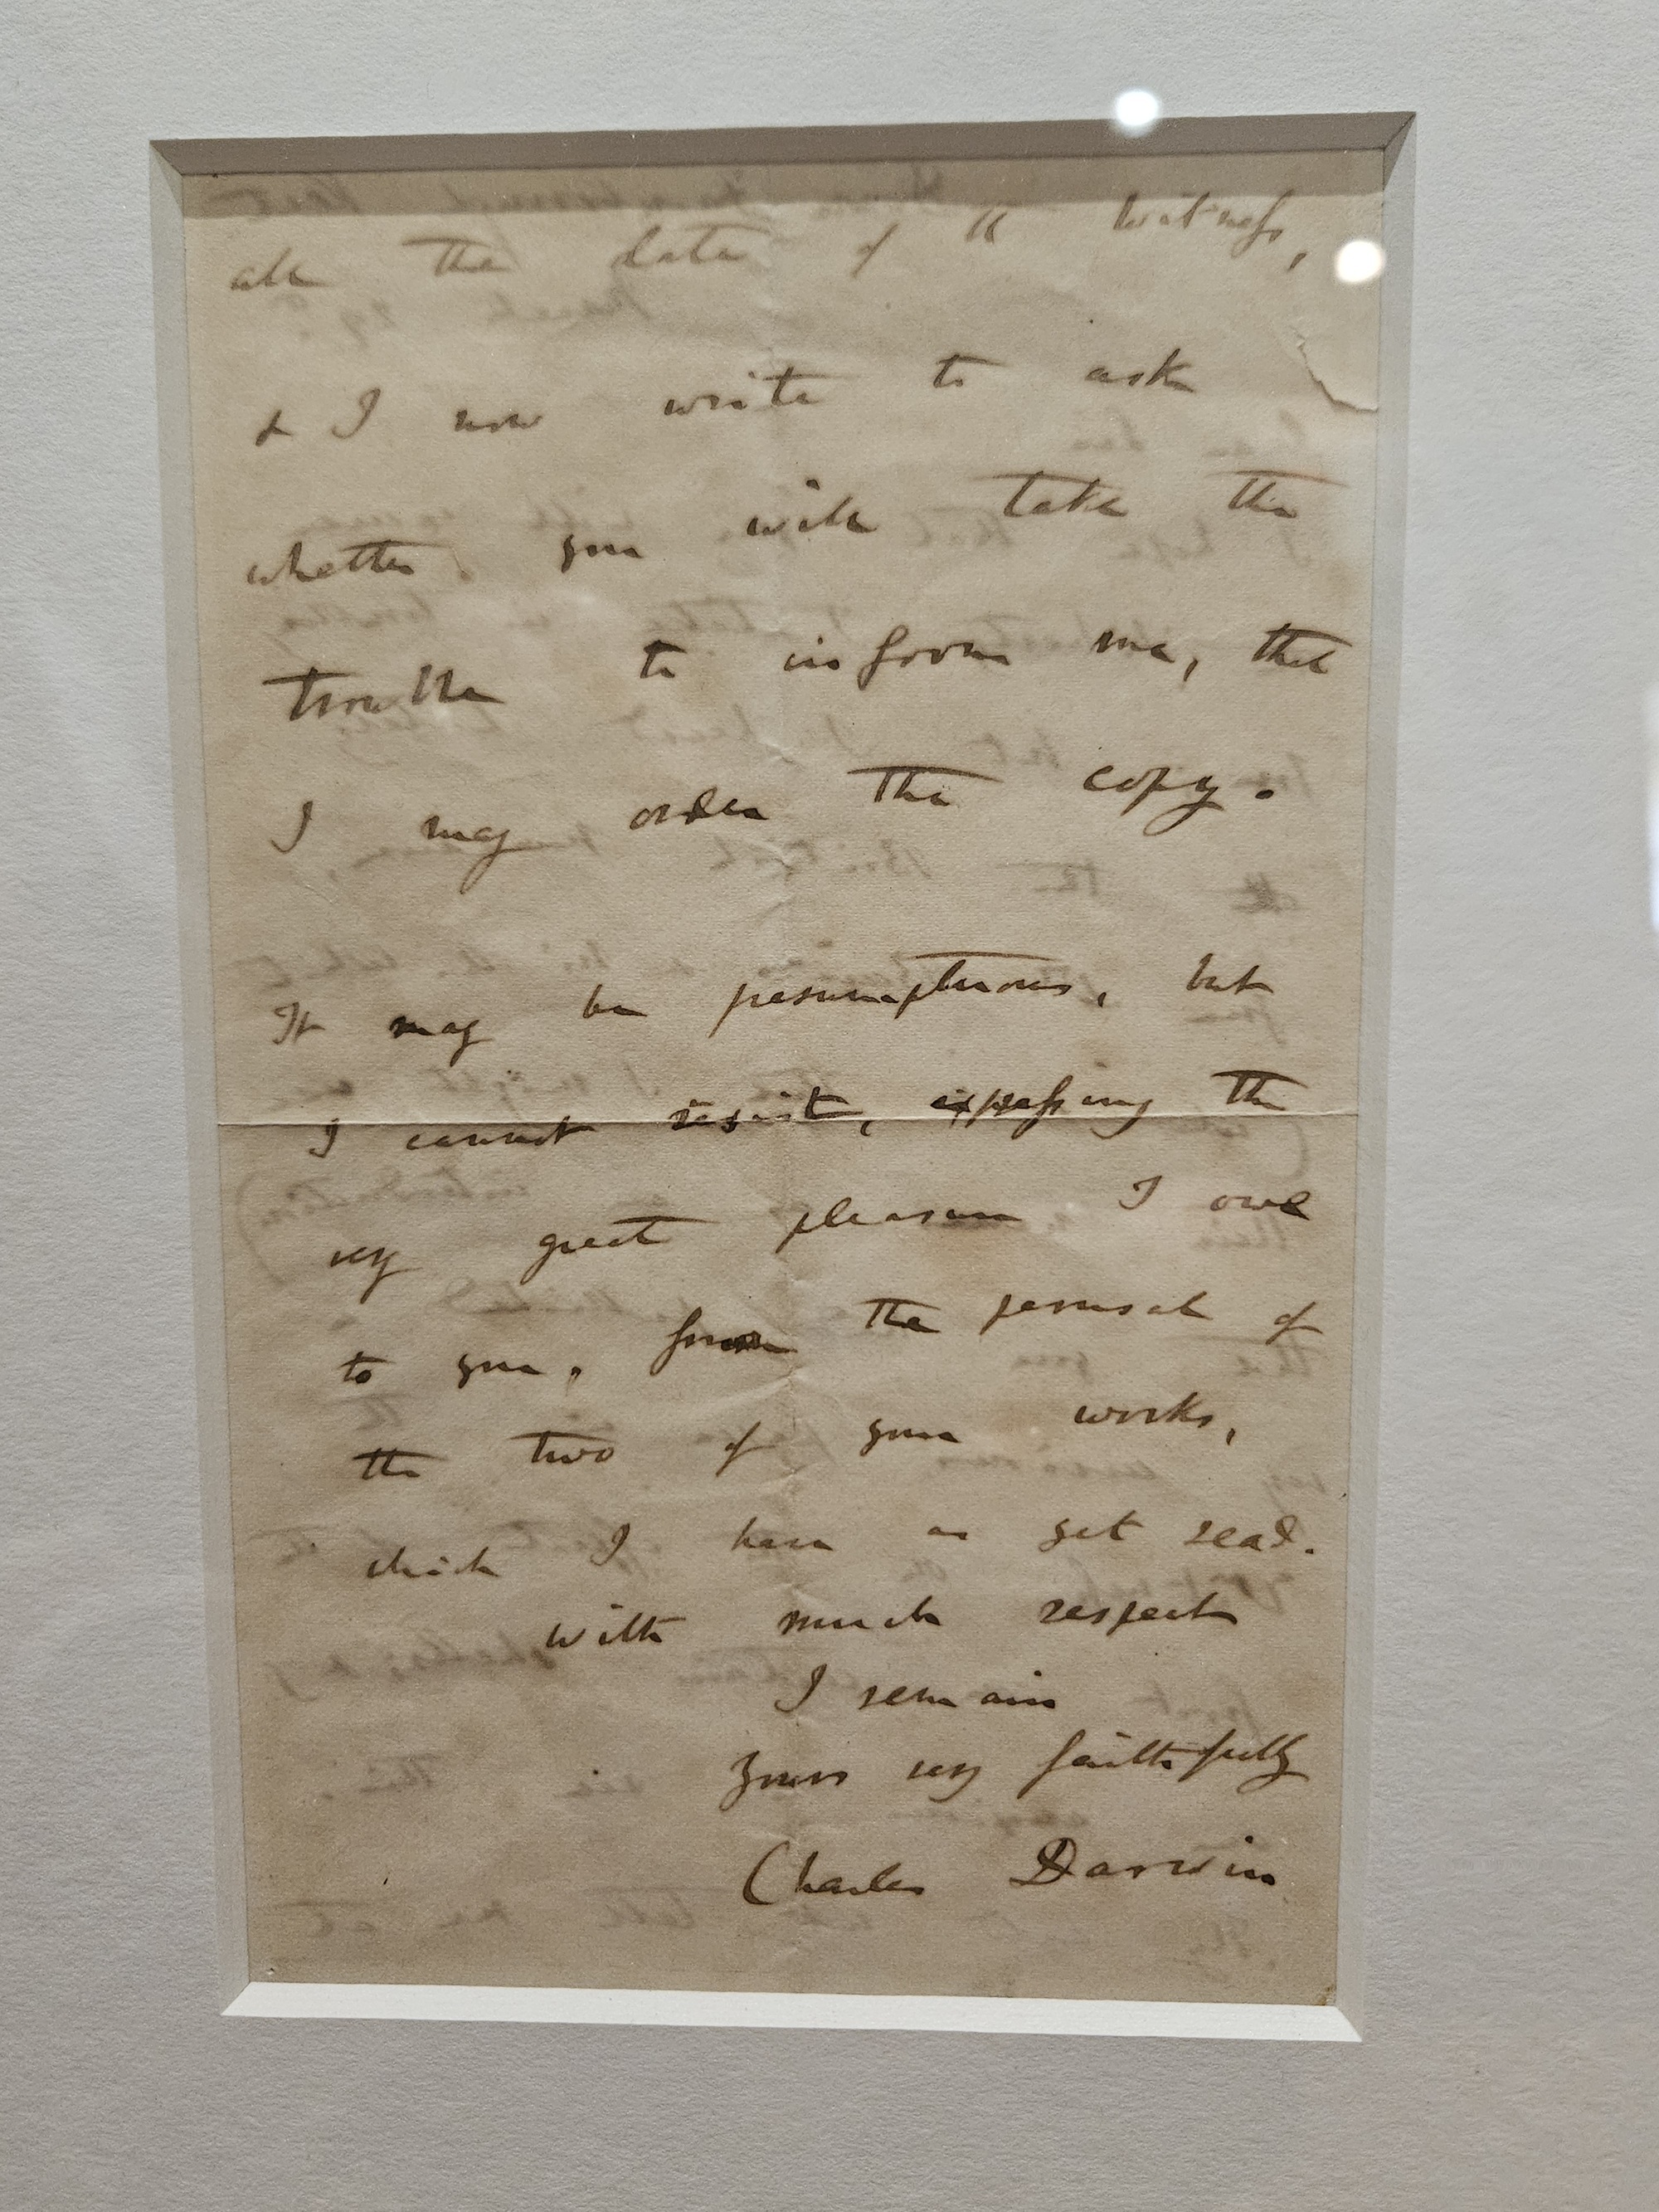 all the date of "Witness,
& I now write to ask
whether you will take the
trouble to inform me, that
I may order the copy.
It may be presumptuous, but
I cannot resist, expressing the
very great pleasure I owe
to you, from the perusal of
the two of your works,
which I have as yet read.
With much respect
I remain
Yours very faithfully
Charles Darwin